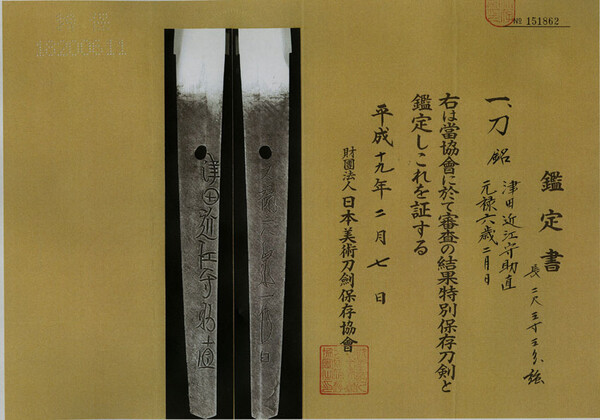 № 151862
鑑定書
一、刀 銘 津田近江守助直
元禄六歳二月日
長 二尺三寸三分強
右は當協會に於て審査の結果特別保存刀剣と
鑑定しこれを証する
平成十九年二月七日
財團法人 日本美術刀剣保存協會
津田近江守助直